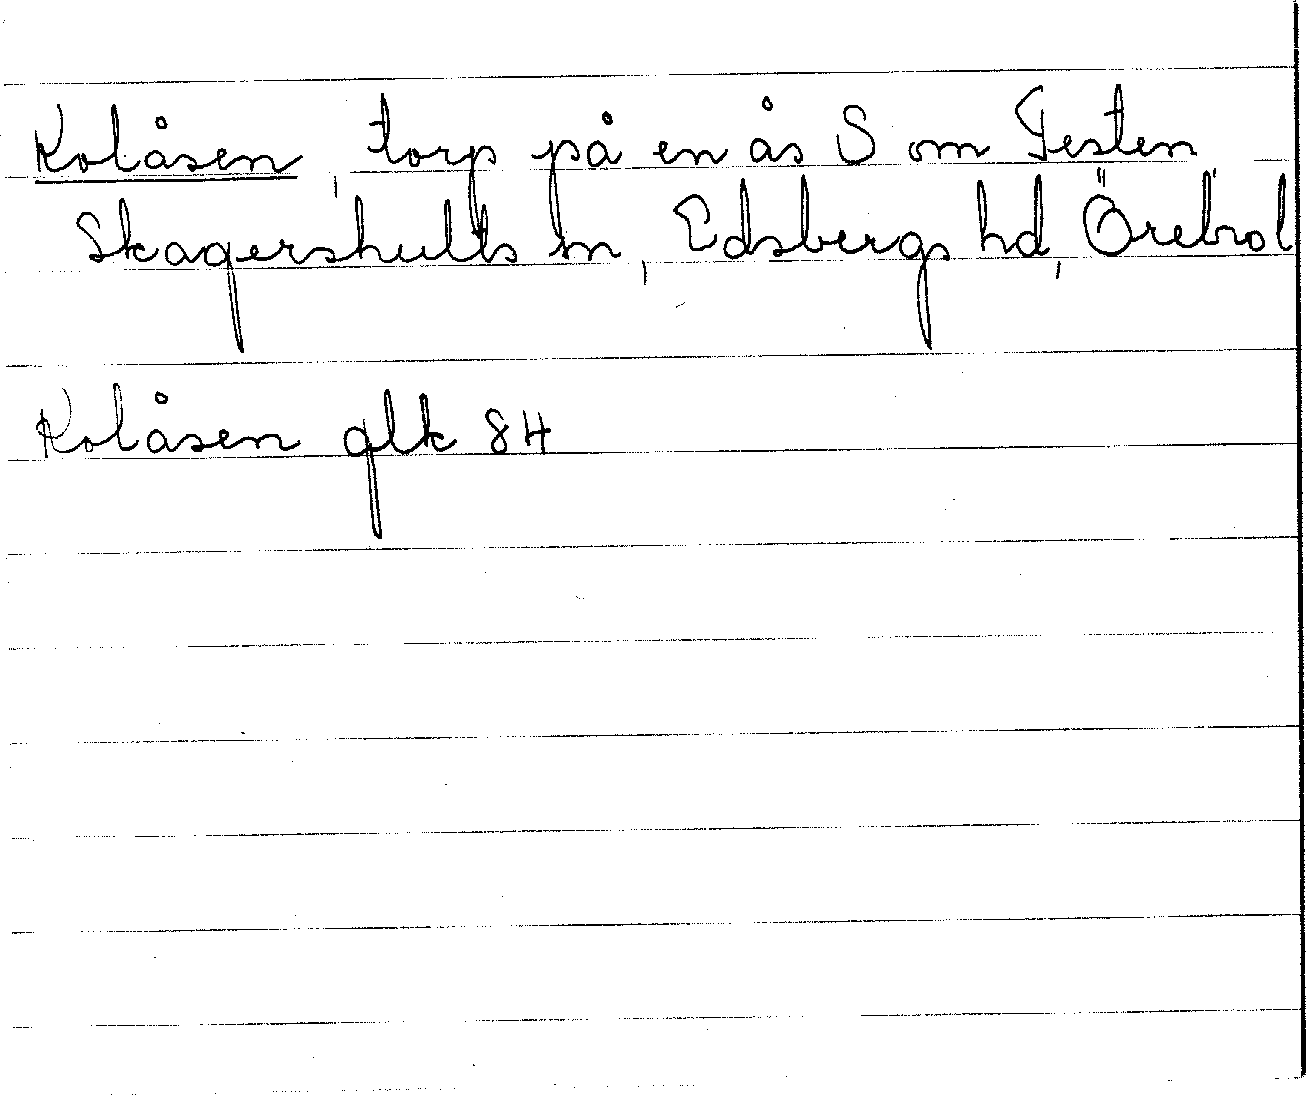 Kolåsen, torp på en ås S om Testen,
Skagershults sn, Edsbergs hd, Örebro l
Kolåsen glk 84